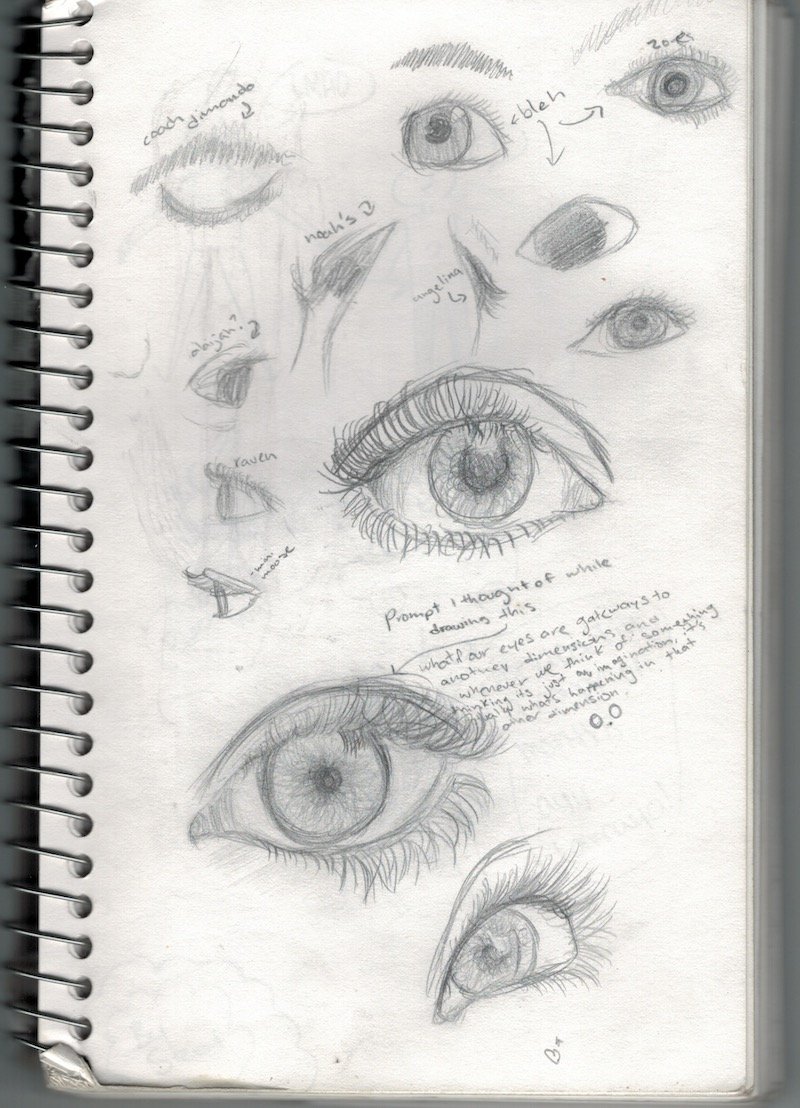 zoe
coach dimando
<bleh
noah's
angelina
alaijah?
raven
-mia.
moose
Prompt I thought of while
drawing this
what if our eyes are gateways to
another dimensions and
whenever we think of something
thinking its just our imagination, it's
really what's happening in that
other dimension.
O.O